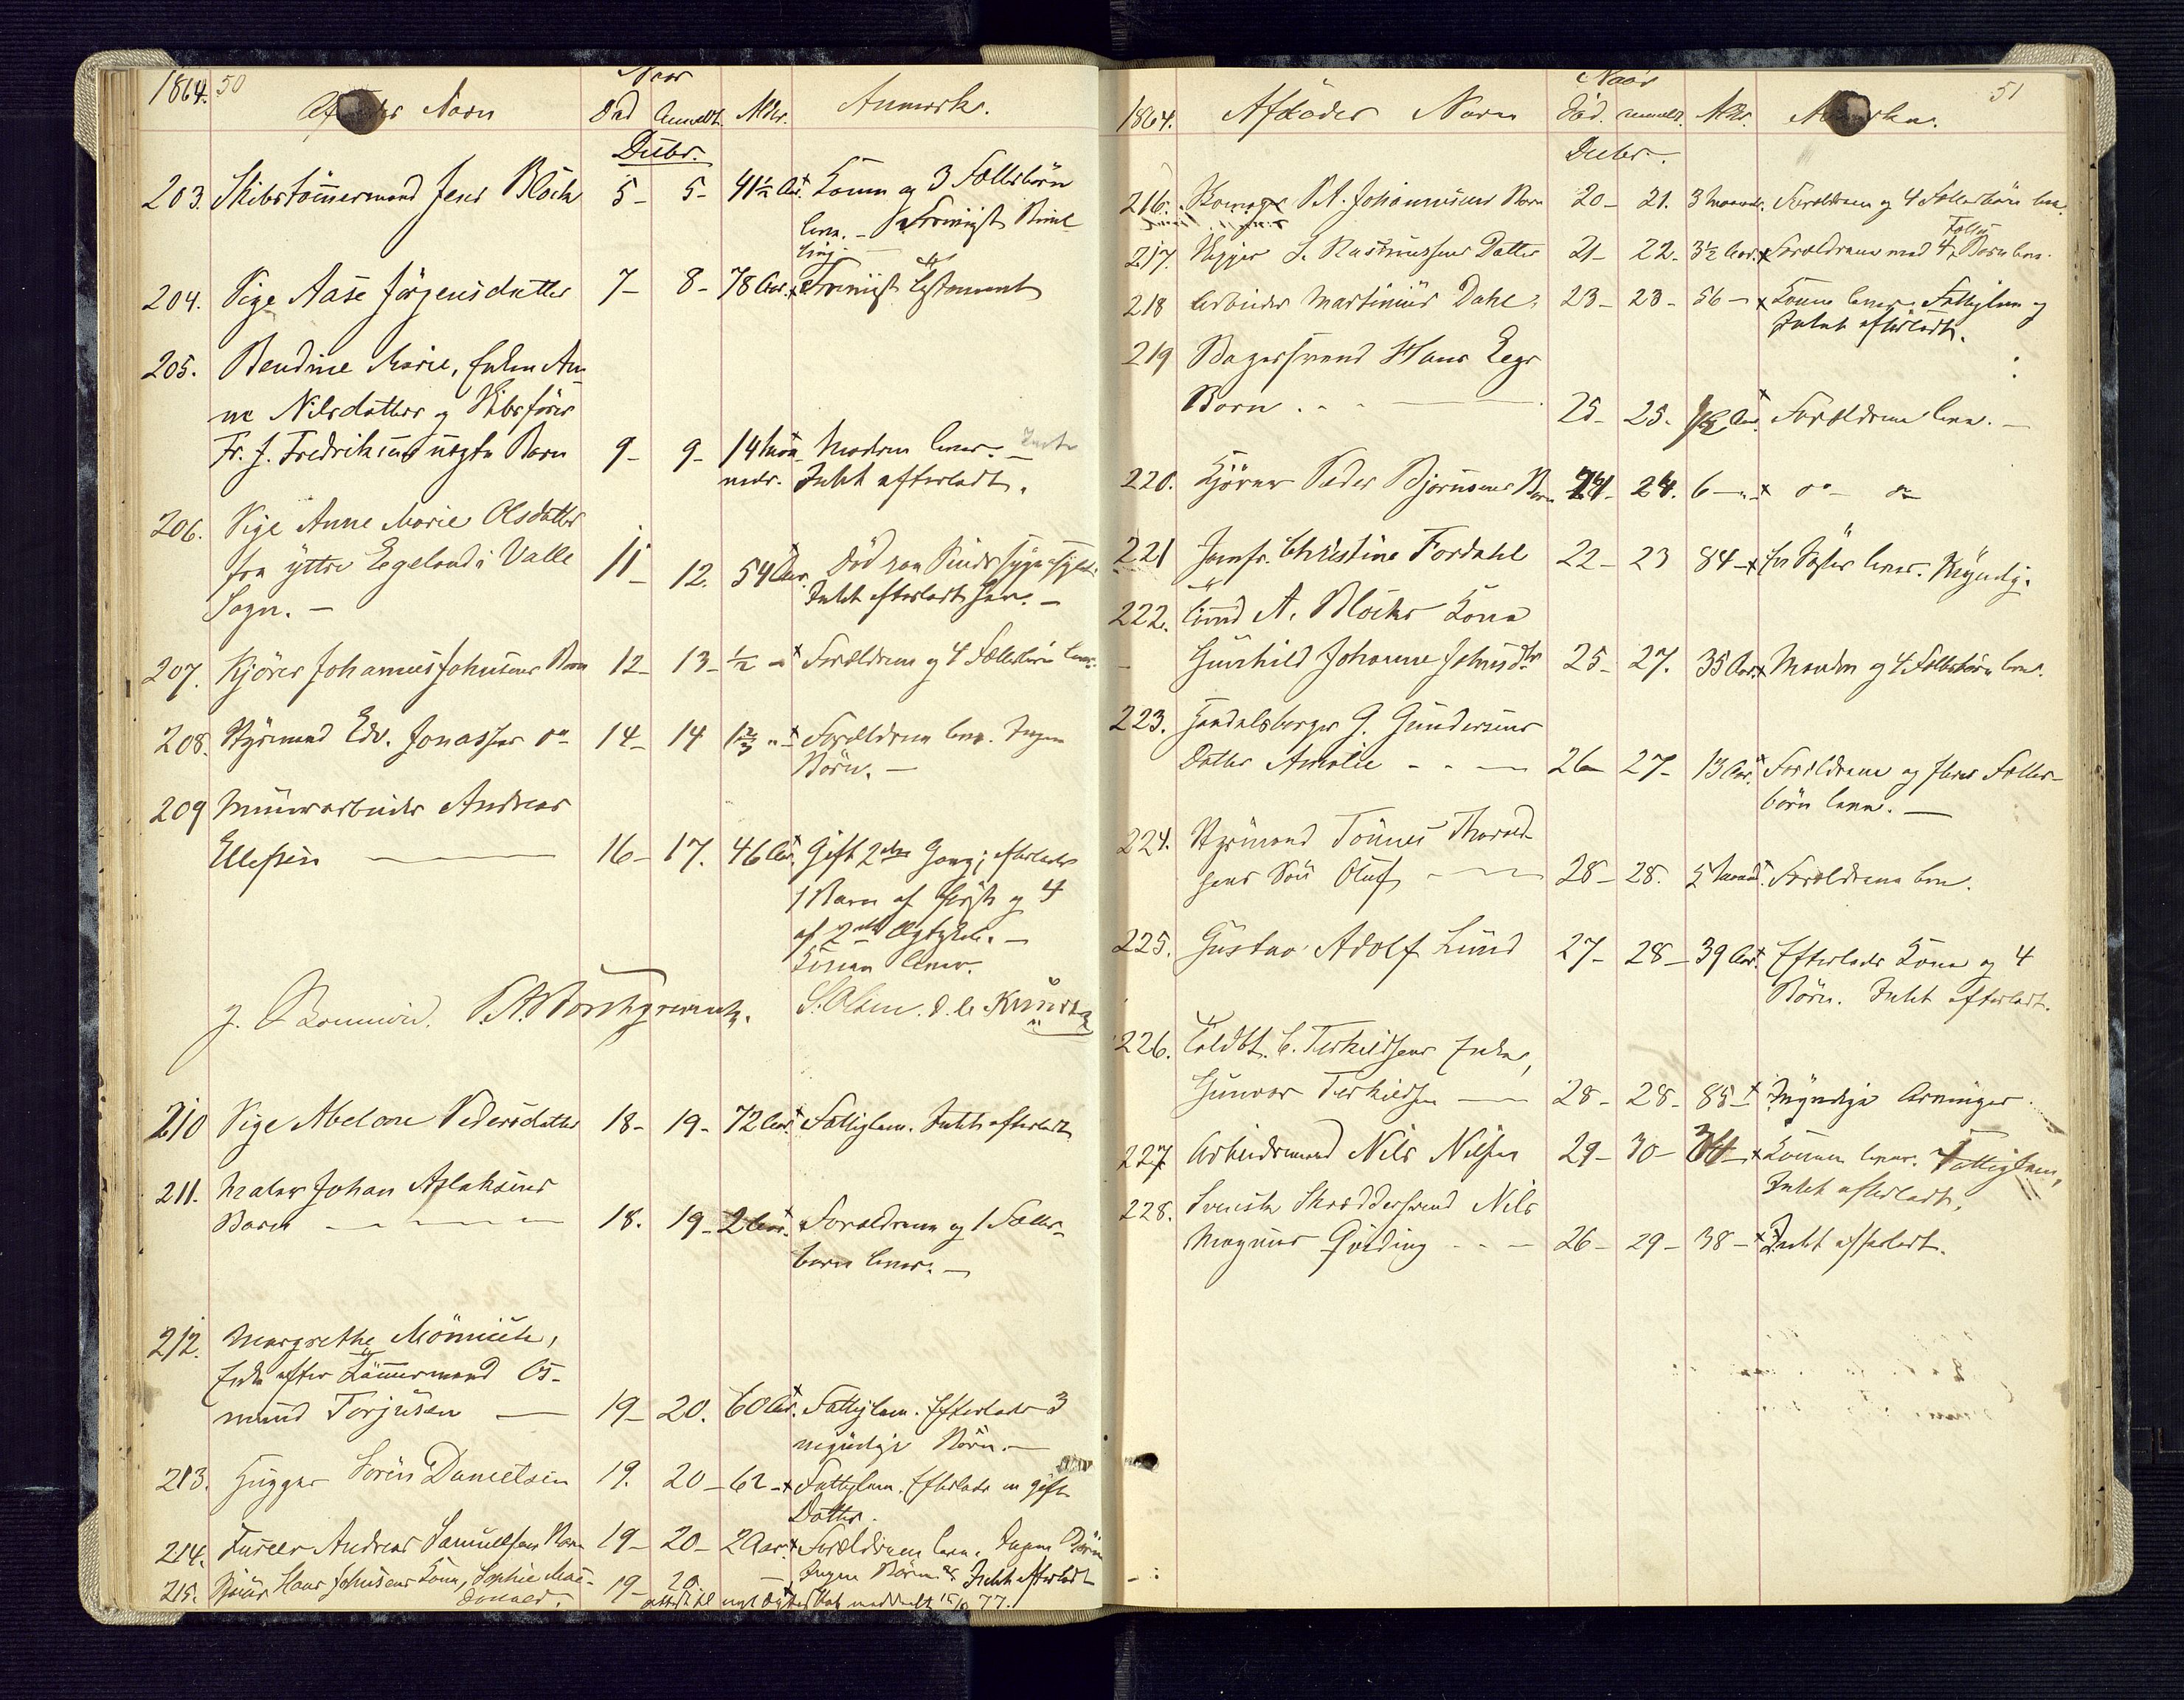 1864. 50
Afdødes Navn Naar Død Anmeldt. Alder. Anmærk.
Decbr.
203. Skibstømmermand Jens Bloch 5- 5- 41½ Aar. Konen og 3 Fællesbørn
leve. -
204. Pige Aase Jørgensdatter 7- 8- 78 Aar.
205. Bendine Marie, Enken An-
ne Nilsdatter og Skibsfører
Fr. J. Fredriksens uægte Barn 9- 9- 14 Maa- Moderen lever. -
neder. Intet efterladt.
206. Pige Anne Marie Olsdatter
fra yttre Egeland i Valle 11- 12. 54 Aar. Død paa Sindssygeasylet.
Sogn. - Intet efterladt her. -
207. Kjører Johannes Johnsens Barn 12- 13- ½ - Forældrene og 4 Fællesbørn leve.
208. Styrmand Edv. Jonassens do 14- 14 1⅔ - Forældrene leve. Ingen
Børn. -
209 Minerarbeider Andreas
Ellefsen 16- 17. 46 Aar. Gift 2den Gang; efterlader
1 Barn af første og 4
af 2det Ægteskab. -
Konen lever.
S. Olsen.
210 Pige Abelone Pedersdatter 18- 19- 72 Aar. Fattiglem. Intet efterladt
211. Maler Johan Aslaksens
Barn 18. 19- 2 Aar. Forældrene og 1 Fælles-
barn lever. -
212. Margrethe
Enke efter Tømmermand Os-
mund Torjusen 19- 20. 60 Aar. Fattiglem. Efterlader 3
myndige Børn. -
213. Hugger Søren Danielsen 19. 20- 62- Fattiglem. Efterlader en gift
Datter.
214. Andreas Samuelsens Barn 19- 20- 2 Aar. Forældrene leve. Ingen Børn
215. Hans Johnsens Kone, Sophie Mac- 19- 20 - Ingen Børn Intet efterladt
donald. attest til nyt Ægteskab meddelt 77.
51
1864. Afdødes Navn Naar Død. anmeldt. Alder. Anmærkn.
Decbr.
216. Johannesens Barn 20- 21. 3 Maaneder. Forældrene og 4 Fællesbørn leve.
Fælles
217. Rasmussens Datter 21- 22- 3½ Aar. Forældrene med 4 Børn leve.
218 Arbeider Martinius Dahl. 23- 23- 56 - Konen lever. Fattiglem og
Intet efterladt.
219 Bagersvend Hans Eegs
Barn 25- 25. ½ Aar. Forældrene leve. -
220. Kjører Peder Bjørnsens Barn 24- 24. 6 - do - do
221 Jomfr. Christine Fordahl 22- 23 84 - En Søster lever. Myndig.
222. A. Blochs Kone
- Gunhild Johanne Johnsdtr 25- 27. 35 Aar. Manden og 4 Fællesbørn leve.
223. Handelsborger G. Gundersens
Datter Amalie 26- 27- 13 Aar. Forældrene og flere Fælles-
børn leve. -
224. Styrmand Tønnes Thorald-
sens Søn Oluf 28- 28. 5 Maaned. Forældrene leve.
225. Gustav Adolf Lund 27- 28- 39 Aar. Efterlader Kone og 4
Børn. Intet efterladt.
226. Toldbt. C. Terkildsens Enke,
Gunvor Terkildsen 28- 28- 85 - Myndige Arvinger.
227. Arbeidsmand Nils Nilsen 29- 30- Konen lever. Fattiglem,
Intet efterladt.
228. Svenske Skræddersvend Nils
Magnus Qviding 26- 29- 38 - Intet efterladt.